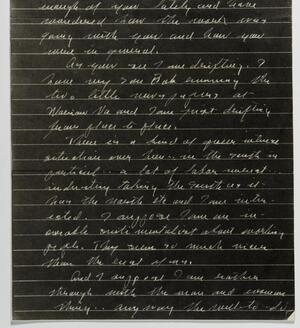 enough of you lately and have
wondered how the work was
going with you and how you
were in general.
As you see I am drifting. I
have my son Bob running the
two little newspapers at
Marion Va and I am just drifting
from place to place.
There is a kind of queer intense
situation over here.. in the South in
particular.. a lot of labor unrest..
industry taking the South as it
has the North etc and I am inter-
ested. I suppose I am an in-
curable sentimentalist about working
people. They seem so much nicer
than the rest of us.
And I suppose I am rather
through with the man and woman
thing.. anyway the well-to-do